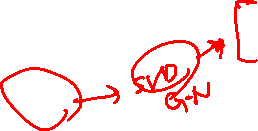 SVD
G-N